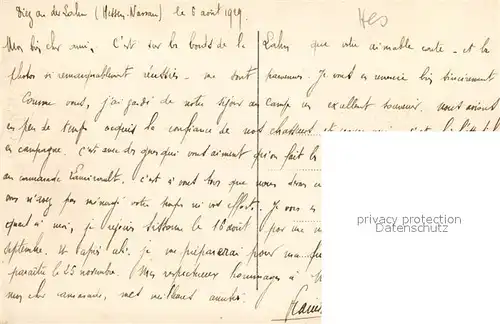 Diez an der Lahn (Hessen-Nassau) le 6 août 1929
Hes
Mon bien cher ami, C'est sur les bords de la Lahn que votre aimable carte - et la
photo si remarquablement réussie - me sont parvenues. Je vous en remercie bien sincèrement
Comme vous, j'ai gardé de notre séjour au camp un excellent souvenir. nous avions
en peu de temps acquis la confiance de nos chasseurs et
en campagne. C'est avec des gens qui vous aiment qu'on fait
au commandant c'est à vous tous que nous
vous n'avez pas ménagé votre temps ni vos efforts. Je vous
quant à moi, je rejoins Sissonne le 16 août pour
septembre. Et après cela, je me préparerai pour
paraître le 25 novembre. Mes respectueux hommages à
mon cher camarade, mes meilleures amitiés.
privacy protection